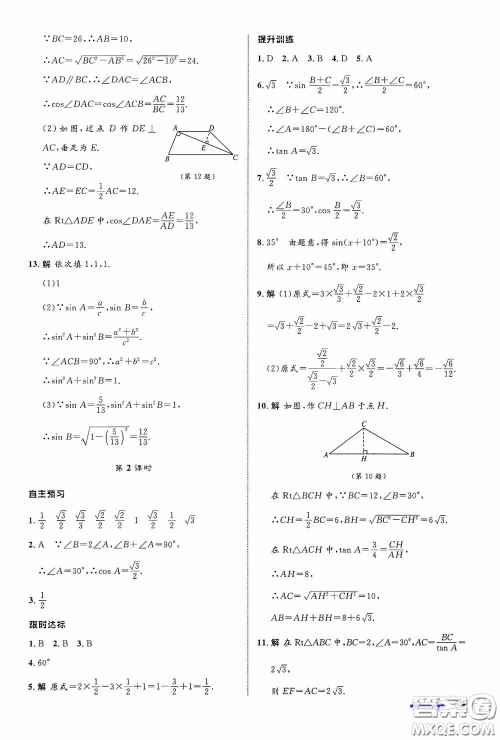 ∵BC=26，∴AB=10.
∴AC=√(BC²−AB²)=√(26²−10²)=24.
∵AD∥BC，∴∠DAC=∠ACB，
∴cos∠DAC=cos∠ACB=12/13.
(2)如图，过点 D 作 DE⊥
AC，垂足为 E.
∵AD=CD，
∴AE=EC=1/2AC=12.
在 Rt△ADE 中，cos∠DAE=AE/AD=12/13，
∴AD=13.
A D
E
B C
(第 12 题)
13. 解 依次填 1，1，1.
(1)1
(2)∵sin A=a/c，sin B=b/c，
∴sin²A+sin²B=(a²+b²)/c².
∵∠ACB=90°，∴a²+b²=c².
∴sin²A+sin²B=1.
(3)∵sin A=5/13，sin²A+sin²B=1，
∴sin B=√(1−(5/13)²)=12/13.
第 2 课时
自主预习
1. 1/2 √3/3 √3/2 √2/2 √2/2 1 √3/2 1/2 √3
2. A ∵∠B=2∠A，∠B+∠A=90°，
∴∠A=30°，∴cos A=√3/2.
3. 1/2
限时达标
1. B 2. B 3. B
4. 60°
5. 解 原式=2×1/2−3×1/3+1=1−1+1=
提升训练
1. D 2. A 3. B 4. D 5. A
6. √3 ∵sin (B+C)/2=√3/2，∴(∠B+∠C)/2=60°，
∴∠B+∠C=120°.
∴∠A=180°−(∠B+∠C)=60°，
∴tan A=√3.
7. √3/2 ∵tan B=√3，∴∠B=60°，
∴∠B/2=30°，cos B/2=√3/2.
8. 35° 由题意，得 sin(x+10°)=√2/2，
所以 x+10°=45°，即 x=35°.
9. 解 (1)原式=3×√3/3+√2/2−2×√2/2×1/2
=√3+√2/2−√2/2=√3.
10. 解 如图，作 CH⊥AB 于点 H.
C
A H B
(第 10 题)
在 Rt△BCH 中，∵BC=12，∠B=30°，
∴CH=1/2BC=6，BH=√(BC²−CH²)=6√3.
在 Rt△ACH 中，tan A=3/4=CH/AH，
∴AH=8，
∴AC=√(AH²+CH²)=10，
AB=AH+BH=8+6√3.
11. 解 在 Rt△ABC 中，BC=2，∠A=30°，AC=BC/tan A=
2√3，
则 EF=AC=2√3.
答案圈
MXQE.COM